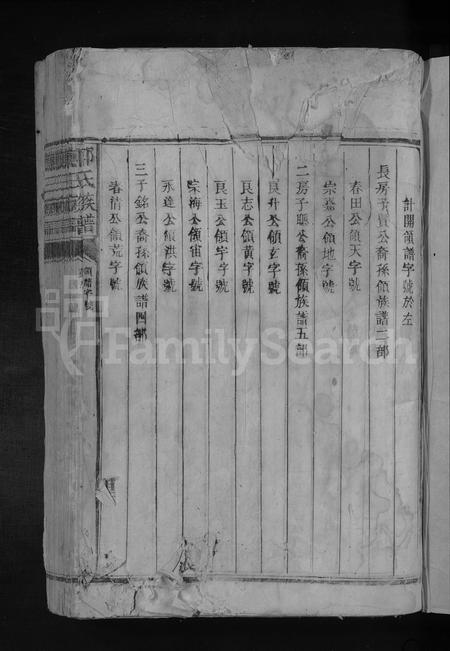 計開領譜字號於左
長房子賢公裔孫領族譜二部
春田公領天字號
宗臺公領地字號
二房子聰公裔孫領族譜五部
良升公領玄字號
良志公領黃字號
良玉公領宇字號
宗海公領宙字號
永達公領洪字號
三子銘公裔孫領族譜四部
公領荒字號
氏族譜
領譜字號
FamilySearch